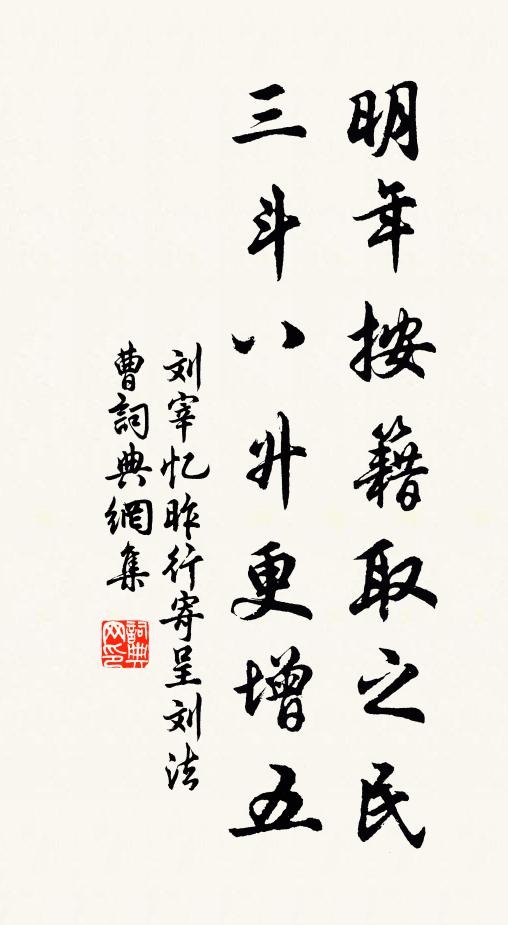 明年按籍取之民
三斗八升更增五
刘宰忆昨行寄呈刘法
曹詞典網集
詞典
网印